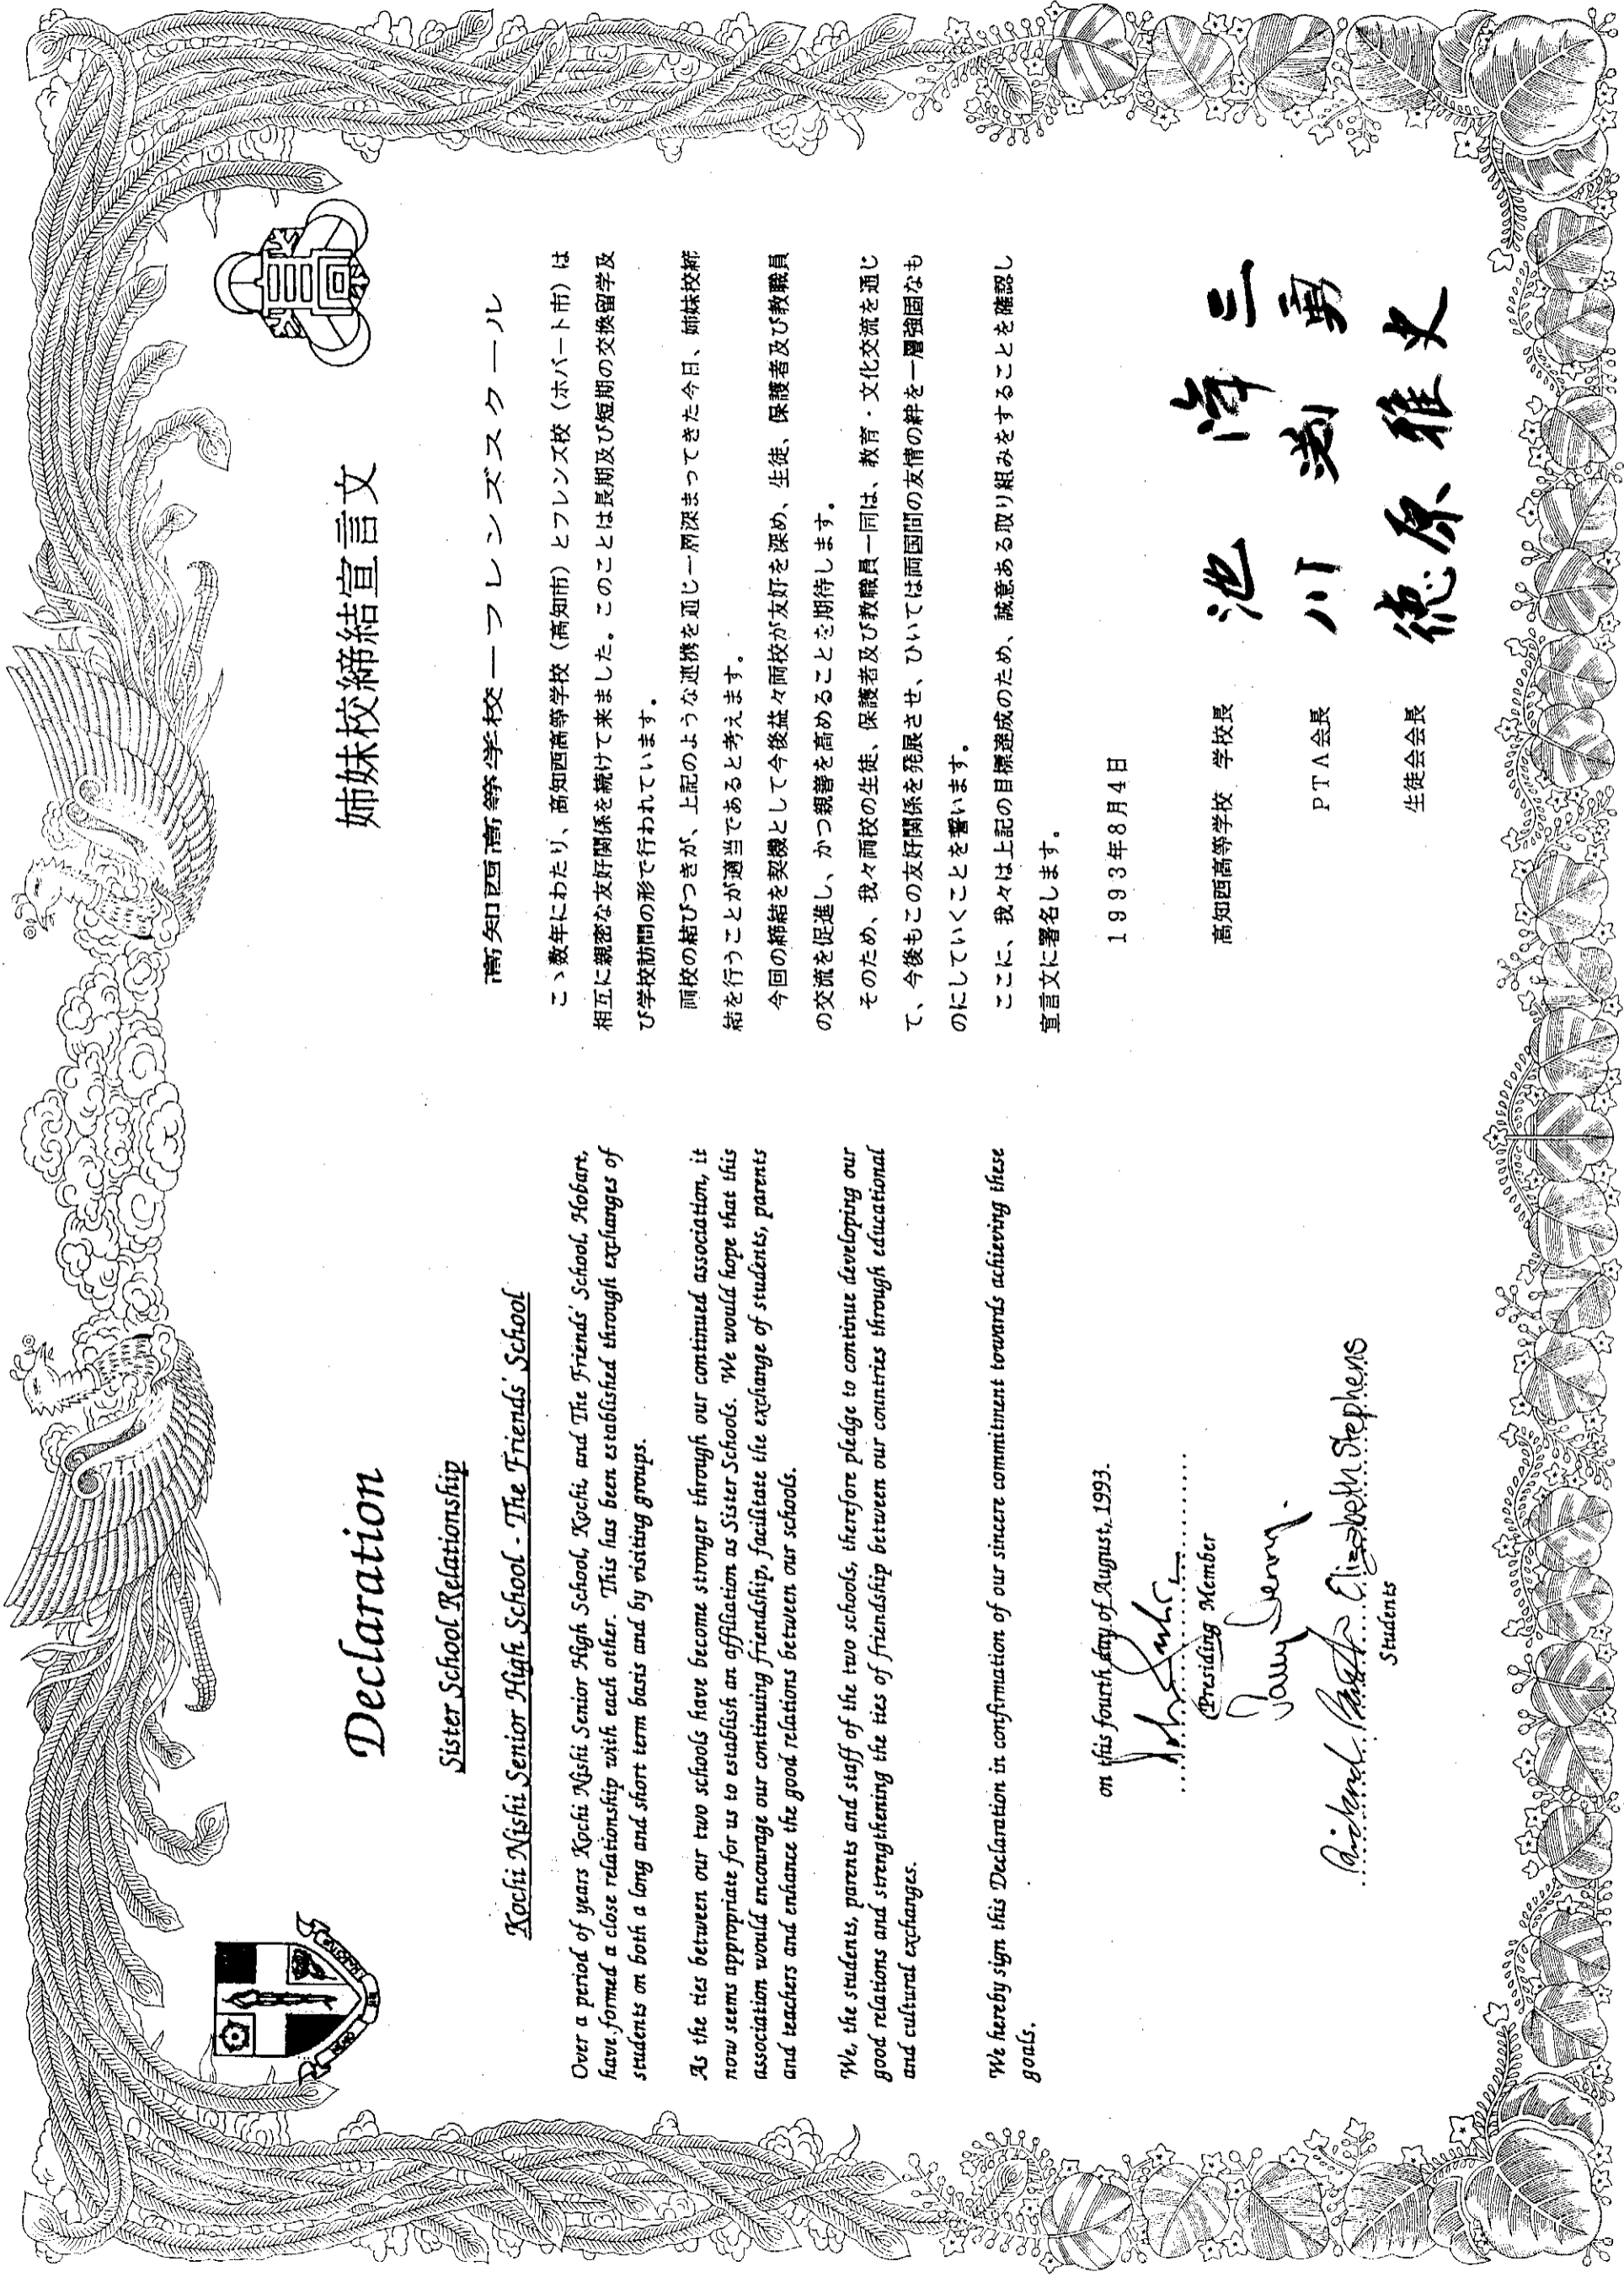 Declaration
Sister School Relationship
Kochi Nishi Senior High School - The Friends' School
Over a period of years Kochi Nishi Senior High School, Kochi, and The Friends' School, Hobart,
have formed a close relationship with each other. This has been established through exchanges of
students on both a long and short term basis and by visiting groups.
As the ties between our two schools have become stronger through our continued association, it
now seems appropriate for us to establish an affiliation as Sister Schools. We would hope that this
association would encourage our continuing friendship, facilitate the exchange of students, parents
and teachers and enhance the good relations between our schools.
We, the students, parents and staff of the two schools, therefore pledge to continue developing our
good relations and strengthening the ties of friendship between our countries through educational
and cultural exchanges.
We hereby sign this Declaration in confirmation of our sincere commitment towards achieving these
goals.
on this fourth day of August, 1993.
Presiding Member
Elizabeth Stephens
Students
姉妹校締結宣言文
高知西高等学校ーフレンズスクール
こゝ数年にわたり、高知西高等学校（高知市）とフレンズ校（ホバート市）は
相互に親密な友好関係を続けて来ました。このことは長期及び短期の交換留学及
び学校訪問の形で行われています。
両校の結びつきが、上記のような連携を通じ一層深まってきた今日、姉妹校締
結を行うことが適当であると考えます。
今回の締結を契機として今後益々両校が友好を深め、生徒、保護者及び教職員
の交流を促進し、かつ親善を高めることを期待します。
そのため、我々両校の生徒、保護者及び教職員一同は、教育・文化交流を通じ
て、今後もこの友好関係を発展させ、ひいては両国間の友情の絆を一層強固なも
のにしていくことを誓います。
ここに、我々は上記の目標達成のため、誠意ある取り組みをすることを確認し
宣言文に署名します。
1993年8月4日
高知西高等学校 学校長 池 澤 三
PTA会長 川 渕 勇
生徒会会長 徳原雅史